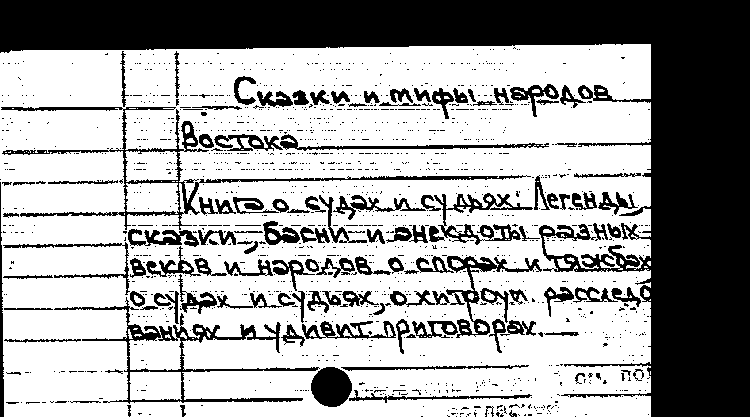 Сказки и мифы народов
Востока
Книга о судах и судьях: Легенды,
сказки, басни и анекдоты разных
веков и народов о спорах и тяжбах
о судах и судьях, о хитроум. расследо
ваниях и удивит. приговорах.
см. по